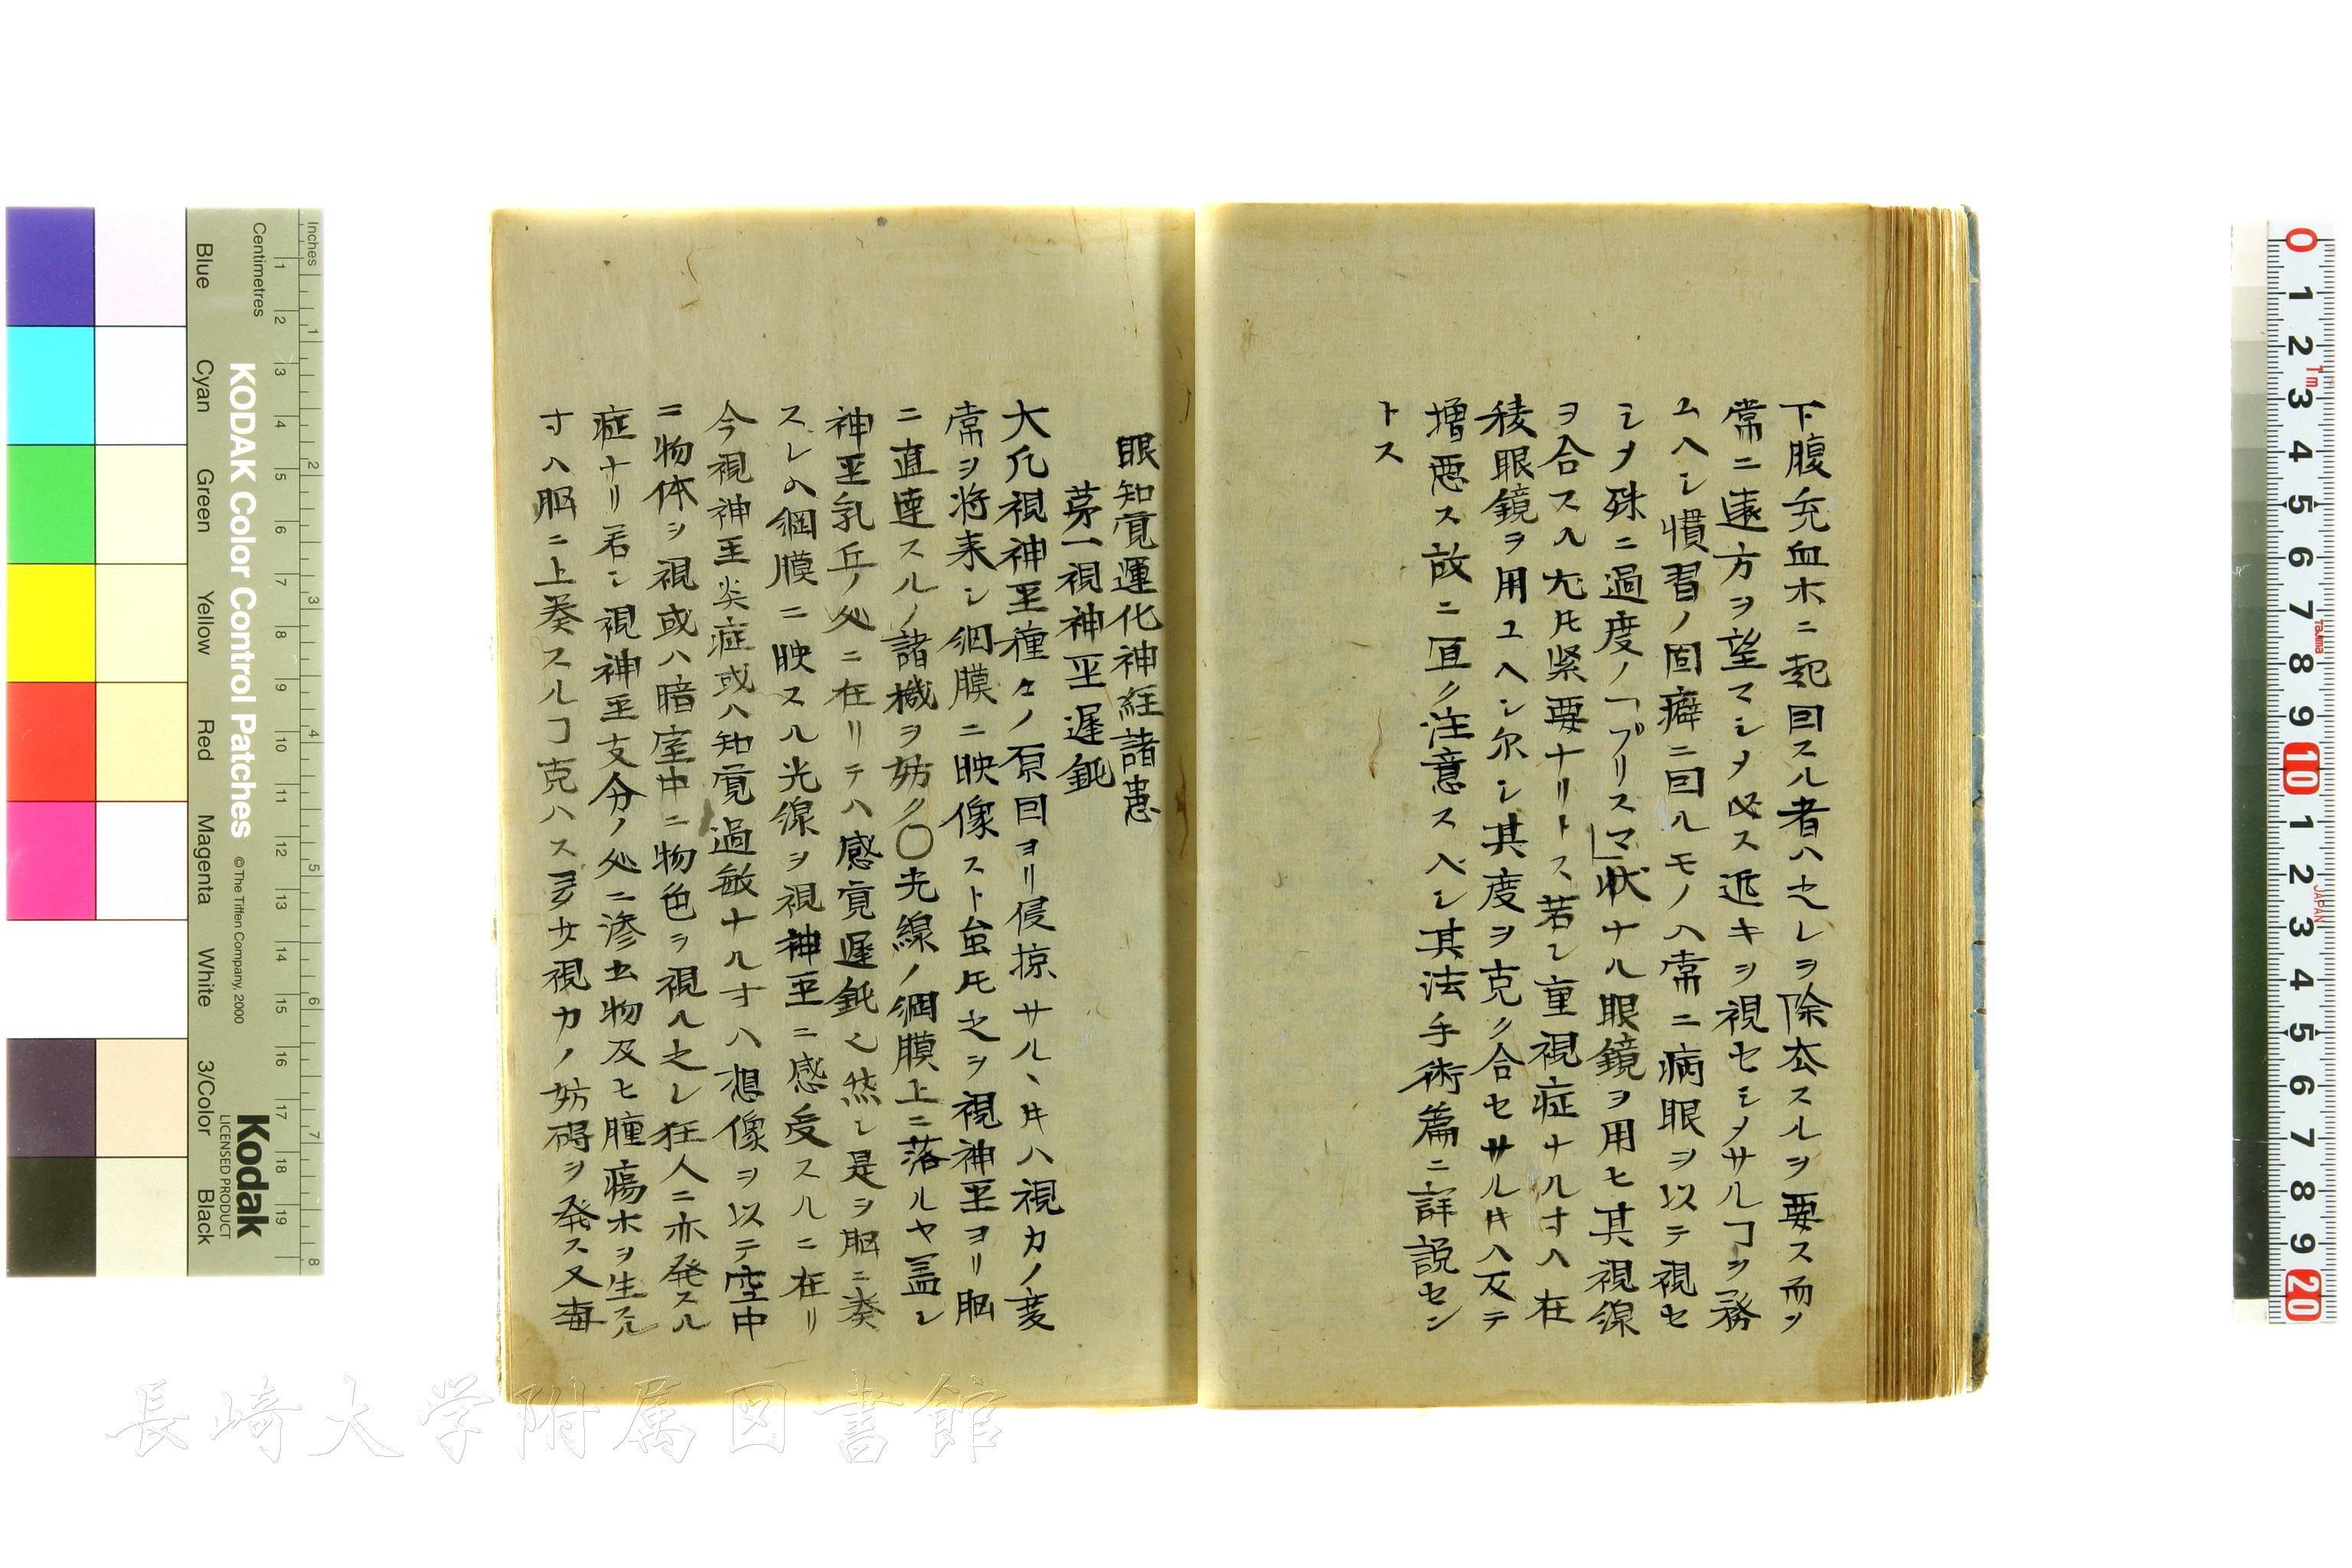 下腹充血ホニ起回スル者ハ之レヲ除去スルヲ要ス而ソ
常ニ遠方ヲ望マシメ必ス近キヲ視セシメサルヿヲ務
ムヘシ慣習ノ固癖ニ回ルモノハ常ニ病眼ヲ以テ視セ
シメ殊ニ過度ノ「プリスマ」状ナル眼鏡ヲ用ヒ其視線
ヲ合スル尤𪜈緊要ナリトス若シ重視症ナルオハ在
稜眼鏡ヲ用ユヘシ尓シ其度ヲ克ク合セサルキハ反テ
増悪ス故ニ宜ク注意スベシ其法手術篇ニ詳説セン
トス
眼知覚運化神経諸患
第一視神経遅鈍
大凡視神経種々ノ原因ヨリ侵掠サル、キハ視力ノ変
常ヲ将来シ網膜ニ映像スト虽𪜈之ヲ視神経ヨリ脳
ニ直達スルノ諸機ヲ妨ク〇光線ノ網膜上ニ落ルヤ盖シ
神経乳丘ノ処ニ在リテハ感覚遅鈍之然シ是ヲ脳ニ奏
スレハ網膜ニ映スル光線ヲ視神経ニ感受スルニ在リ
今視神経炎症或ハ知覚過敏ナルオハ想像ヲ以テ空中
ニ物体ヲ視或ハ暗室中ニ物色ヲ視ル之レ狂人ニ亦発スル
症ナリ若シ視神経支分ノ処ニ滲出物及ヒ腫瘍ホヲ生スル
オハ脳ニ上奏スルヿ克ハス必ス視力ノ妨碍ヲ発ス又毎
Inches
Centimetres
Blue
Cyan
Green
Yellow
Red
Magenta
White
3/Color
Black
KODAK Color Control Patches
© The Tiffen Company, 2000
Kodak
LICENSED PRODUCT
1 2 3 4 5 6 7 8 9 10 11 12 13 14 15 16 17 18 19
1 2 3 4 5 6 7 8
0 1 2 3 4 5 6 7 8 9 10 1 2 3 4 5 6 7 8 9 20
1m
Tajima
JAPAN
長崎大学附属図書館